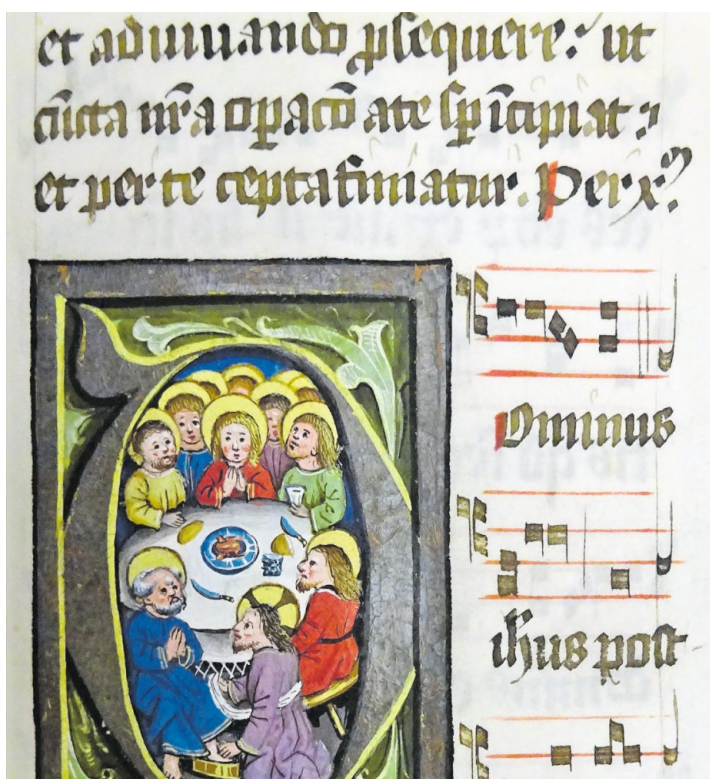 et adiuuando ꝓsequere: ut
cūcta nr̄a oꝑacō a te sꝑ īcipiat:
et per te cepta finiatur. Per xᵐ?
Dominus
ih̄us post